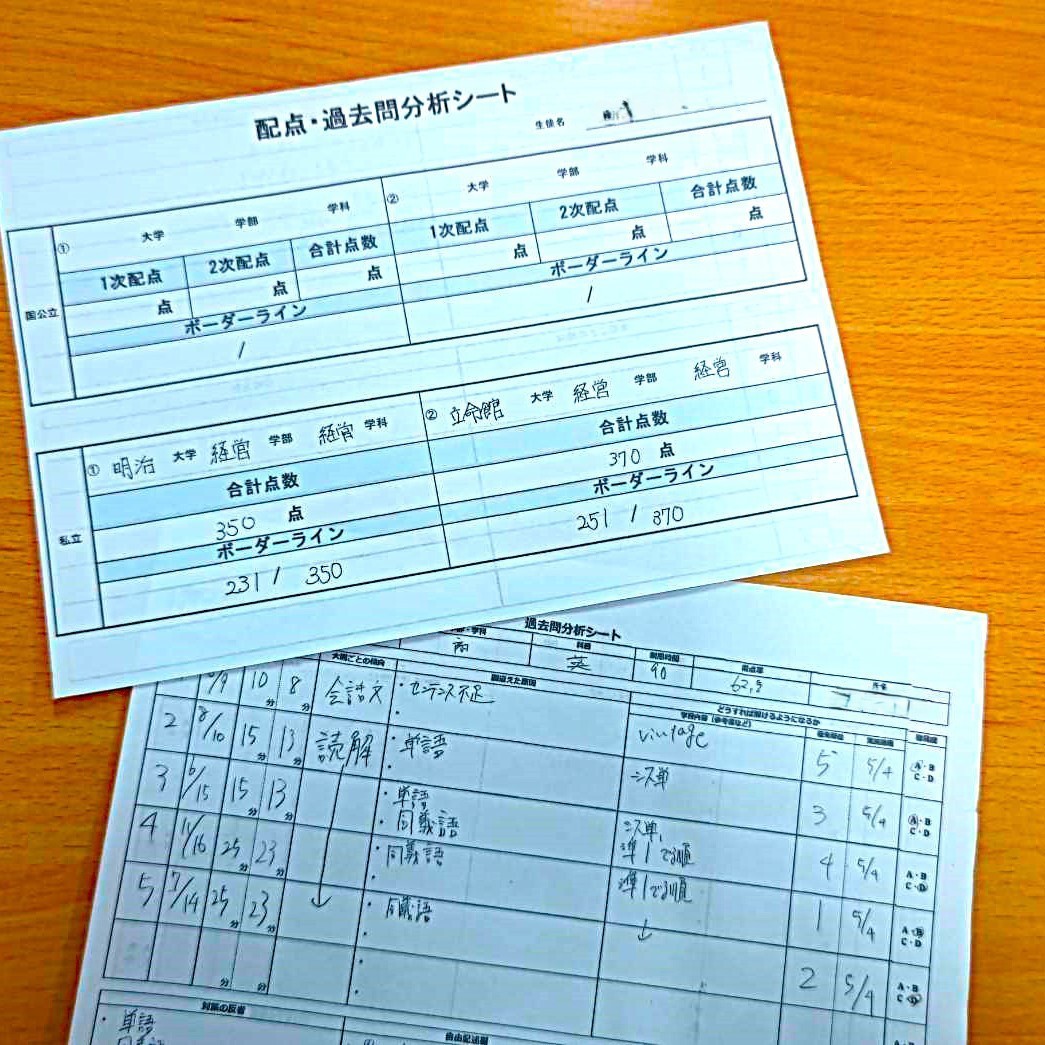 配点・過去問分析シート
生徒名
国公立
① 大学 学部 学科
1次配点 2次配点 合計点数
点 点 点
ボーダーライン
/
② 大学 学部 学科
1次配点 2次配点 合計点数
点 点 点
ボーダーライン
/
私立
① 明治 大学 経営 学部 経営 学科
合計点数
350 点
ボーダーライン
231 / 350
② 立命館 大学 経営 学部 経営 学科
合計点数
370 点
ボーダーライン
251 / 370
過去問分析シート
学部・学科 商 科目 英 制限時間 90 得点率 62.5
大問ごとの傾向 間違えた原因 どうすれば解けるようになるか
学習内容(参考書など) 優先順位
10分 8分 会話文 ・センテンス不足 vintage 5 5/4 A・B C・D
2 8/10 15分 13分 読解 ・単語 シス単 3 5/4 A・B C・D
3 15分 13分 ・単語 ・同義語 シス単, 準1でる順 4 5/4 A・B C・D
4 11/16 25分 23分 ・同義語 準1でる順 1 5/4 A・B C・D
5 7/14 25分 23分 ・同義語 ↓ 2 5/4 A・B C・D
分 分
対策の反省
・単語
自由記述欄